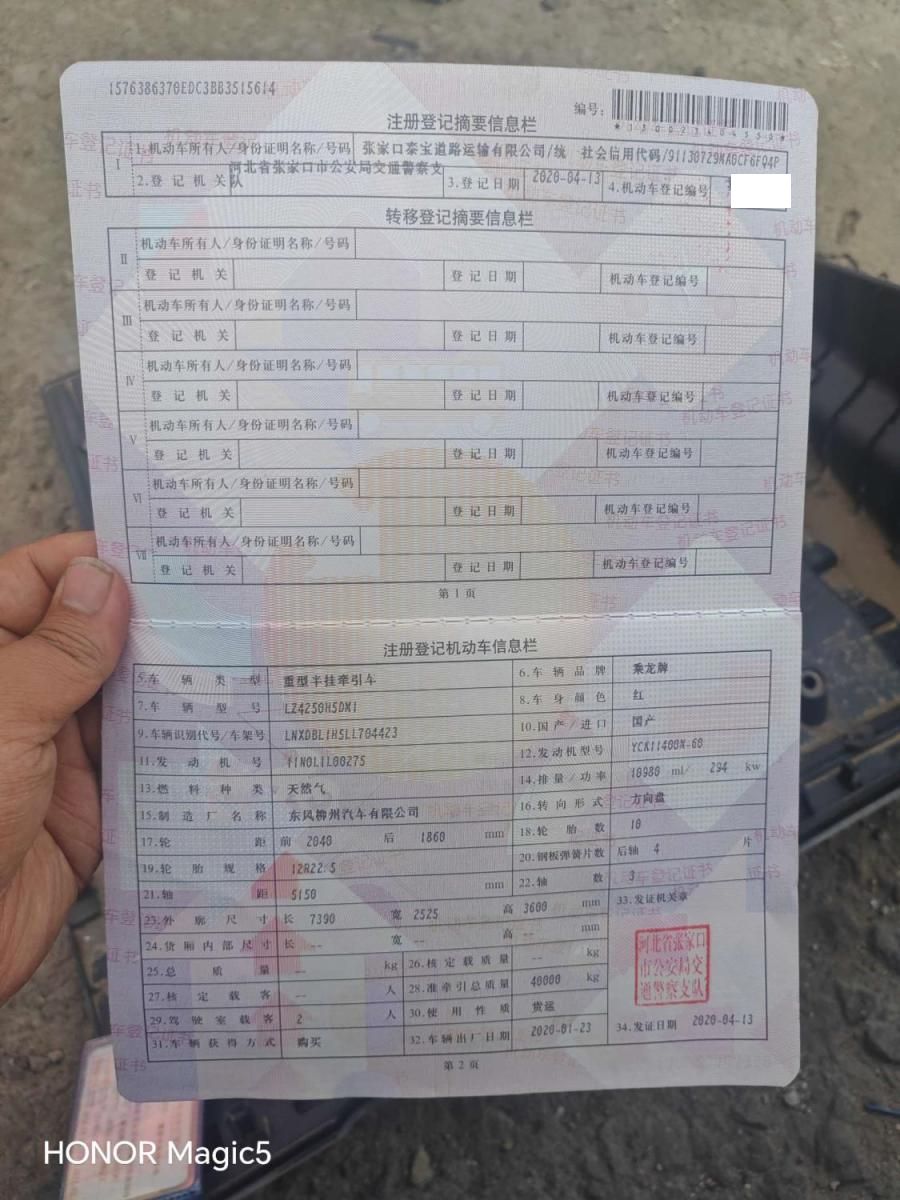 1576386370EDC3BB3515614
编号：
*130021404550*
注册登记摘要信息栏
I
1.机动车所有人/身份证明名称/号码 张家口泰宝道路运输有限公司/统一社会信用代码/91130729MA0CF6FQ4P
2.登记机关 河北省张家口市公安局交通警察支队 3.登记日期 2020-04-13 4.机动车登记编号
转移登记摘要信息栏
II 机动车所有人/身份证明名称/号码
登记机关 登记日期 机动车登记编号
III 机动车所有人/身份证明名称/号码
登记机关 登记日期 机动车登记编号
IV 机动车所有人/身份证明名称/号码
登记机关 登记日期 机动车登记编号
V 机动车所有人/身份证明名称/号码
登记机关 登记日期 机动车登记编号
VI 机动车所有人/身份证明名称/号码
登记机关 登记日期 机动车登记编号
VII 机动车所有人/身份证明名称/号码
登记机关 登记日期 机动车登记编号
第1页
注册登记机动车信息栏
5.车辆类型 重型半挂牵引车 6.车辆品牌 乘龙牌
7.车辆型号 LZ4250H5DM1 8.车身颜色 红
9.车辆识别代号/车架号 LNXDBL1H5LL704423 10.国产/进口 国产
11.发动机号 11N0L1L00275 12.发动机型号 YCK11400N-60
13.燃料种类 天然气 14.排量/功率 10980 ml/ 294 kw
15.制造厂名称 东风柳州汽车有限公司 16.转向形式 方向盘
17.轮距 前 2040 后 1860 mm 18.轮胎数 10
19.轮胎规格 12R22.5 20.钢板弹簧片数 后轴 4 片
21.轴距 5150 mm 22.轴数 3
23.外廓尺寸 长 7390 宽 2525 高 3600 mm 33.发证机关章
24.货厢内部尺寸 长 -- 宽 -- 高 -- mm
25.总质量 -- kg 26.核定载质量 -- kg
27.核定载客 -- 人 28.准牵引总质量 40000 kg
29.驾驶室载客 2 人 30.使用性质 货运
31.车辆获得方式 购买 32.车辆出厂日期 2020-01-23 34.发证日期 2020-04-13
河北省张家口
市公安局交
通警察支队
第2页
HONOR Magic5